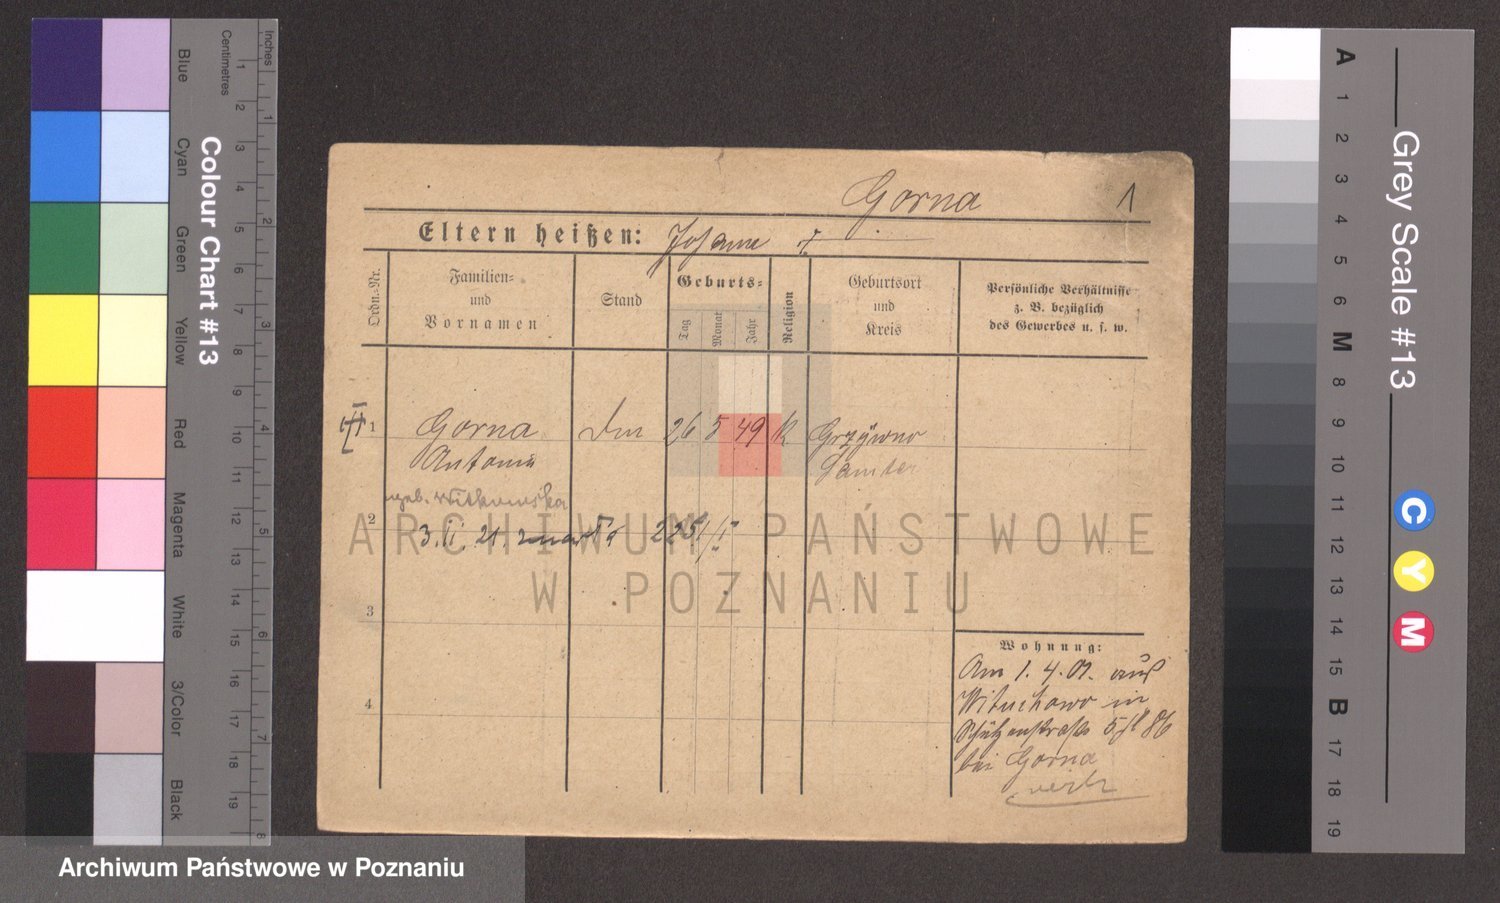 Gorna 1
Eltern heißen: Johann
Ordn.-Nr.
Familien-
und
Vornamen
Stand
Geburts-
Tag
Monat
Jahr
Religion
Geburtsort
und
Kreis
Persönliche Verhältnisse
z. B. bezüglich
des Gewerbes u. s. w.
1 Gorna 26 5 49 k
Antonie Samter
geb. Witkowska
2 3. II. 21.
3
4
Wohnung:
Am 1. 4. 01. aus
Wituchowo in
Schützenstraße
bei Gorna
ARCHIWUM PAŃSTWOWE
W POZNANIU
Archiwum Państwowe w Poznaniu
Colour Chart #13
Blue
Cyan
Green
Yellow
Red
Magenta
White
3/Color
Black
Centimetres
1 2 3 4 5 6 7 8 9 10 11 12 13 14 15 16 17 18 19
Inches
1 2 3 4 5 6 7 8
Grey Scale #13
A 1 2 3 4 5 6 M 8 9 10 11 12 13 14 15 B 17 18 19
C Y M